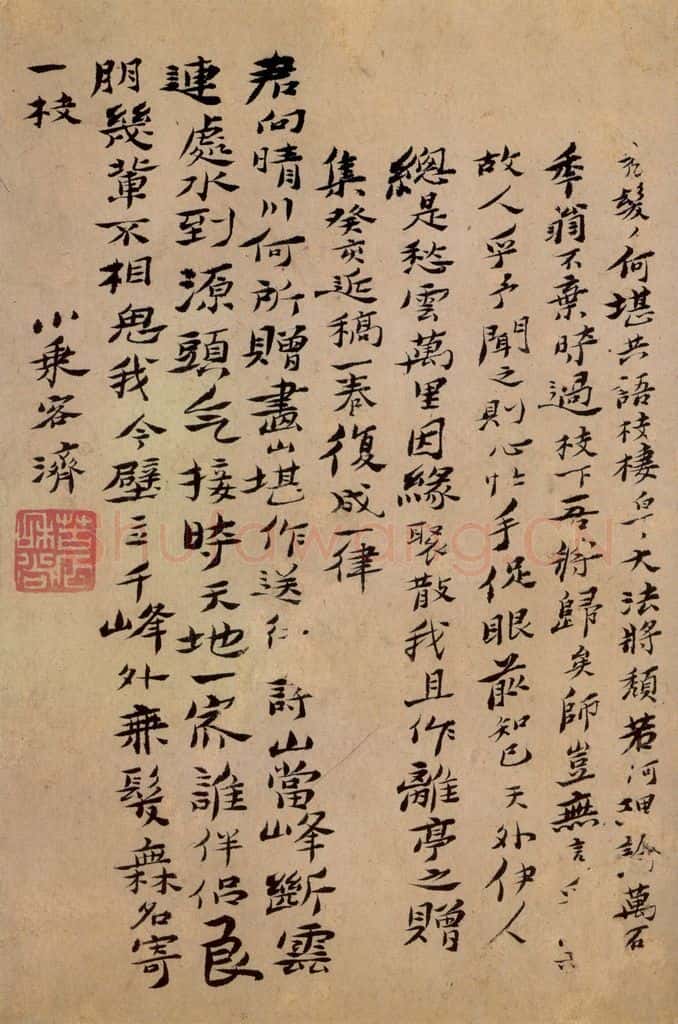 髮〻何堪共語枝棲草〻大法將頹若何理論萬石
季翁不棄時過枝下吾將歸矣師豈無言
故人乎予聞之則心忙手促眼前知己天外伊人
總是愁雲萬里因緣聚散我且作離亭之贈
集癸亥近稿一卷復成一律
君向晴川何所贈畫山堪作送行詩山當峰斷雲
連處水到源頭氣接時天地一家誰伴侶良
朋幾輩不相思我今壁立千峰外無髮無名寄
一枝
小乘客濟
苦瓜和尚